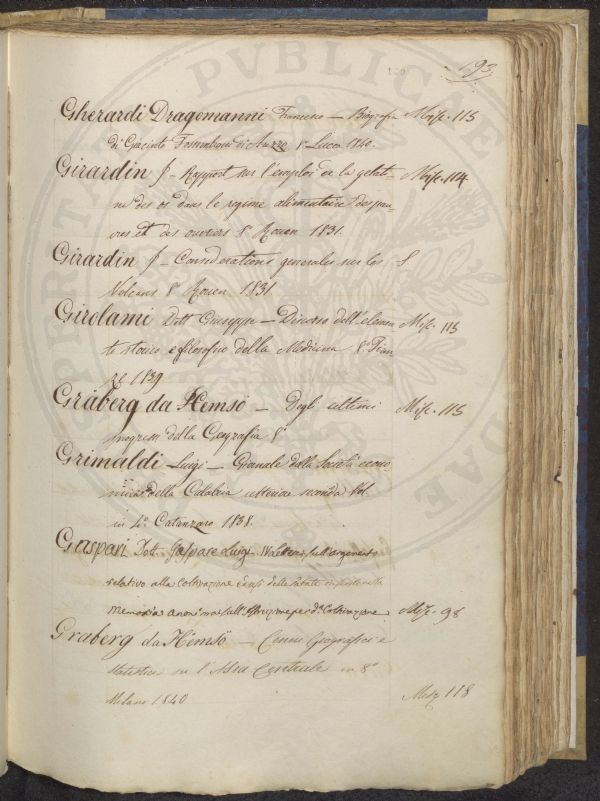 193
Gherardi Dragomanni Francesco — Biografia Misc. 115
di Giacinto Fossombroni d'Arezzo 8° Lucca 1840.
Girardin J — Rapport sur l'emploi de la gelati- Misc. 114
ne des os dans le regime alimentaire des pau-
vres et des ouvriers 8° Rouen 1831.
Girardin J — Considerations generales sur les S
Volcans 8° Rouen 1831
Girolami Dott Giuseppe — Discorso dell'elemen Misc. 115
to storico e filosofico della Medicina 8° Firen
ze 1839
Gräberg da Hemsö — Degli ultimi Misc. 115
progressi della Geografia 8°
Grimaldi Luigi — Giornale della Società econo-
mica della Calabria ulteriore seconda Vol.
in 4° Catanzaro 1838.
Gaspari Dott. Gaspare Luigi sull'argomento
relativo alla coltivazione delle Patate
Memoria anonima sull' per da Coltivazione Misc. 98
Graberg da Hemsö — Cenni Geografici e
statistici su l'Asia Centrale in 8°
Milano 1840 Misc 118